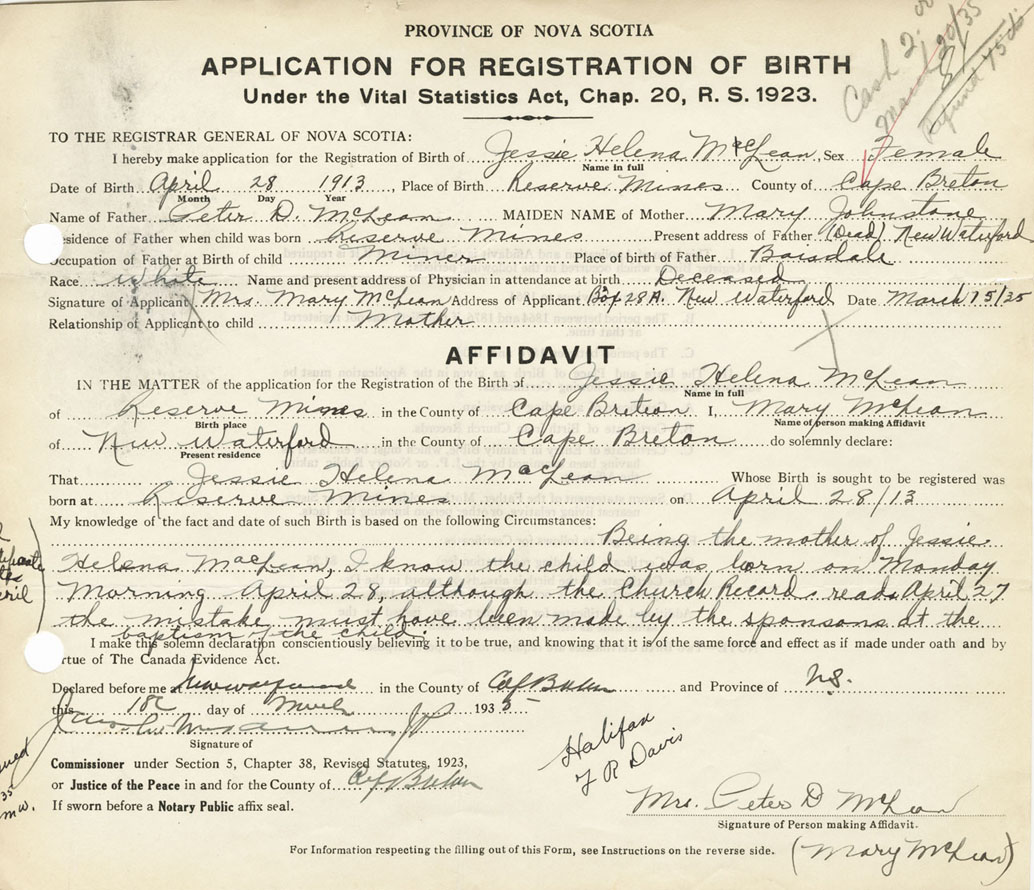 PROVINCE OF NOVA SCOTIA
Cash 2.00
APPLICATION FOR REGISTRATION OF BIRTH
Under the Vital Statistics Act, Chap. 20, R. S. 1923.
TO THE REGISTRAR GENERAL OF NOVA SCOTIA:
I hereby make application for the Registration of Birth of Jessie Helena McLean, Sex Female
Name in full
Date of Birth April 28 1913, Place of Birth Reserve Mines County of Cape Breton
Month Day Year
Name of Father Peter D. McLean MAIDEN NAME of Mother Mary Johnstone
esidence of Father when child was born Reserve Mines Present address of Father (Dead) New Waterford
Occupation of Father at Birth of child Miner Place of birth of Father Boisdale
Race White Name and present address of Physician in attendance at birth Deceased
Signature of Applicant Mrs. Mary McLean Address of Applicant Box 28A. New Waterford Date March 15/35
Relationship of Applicant to child Mother
AFFIDAVIT
IN THE MATTER of the application for the Registration of the Birth of Jessie Helena McLean
Name in full
of Reserve Mines in the County of Cape Breton I, Mary McLean
Birth place Name of person making Affidavit
of New Waterford in the County of Cape Breton do solemnly declare:
Present residence
That Jessie Helena MacLean Whose Birth is sought to be registered was
born at Reserve Mines on April 28/13
My knowledge of the fact and date of such Birth is based on the following Circumstances:
Being the mother of Jessie
Helena MacLean, I know the child was born on Monday
Morning April 28, although the Church Record reads April 27
the mistake must have been made by the sponsors at the
baptism of the child.
I make this solemn declaration conscientiously believing it to be true, and knowing that it is of the same force and effect as if made under oath and by
rtue of The Canada Evidence Act.
Declared before me at New Waterford in the County of Cape Breton and Province of N.S.
this 18th day of March 1935
J.P.
Signature of
Commissioner under Section 5, Chapter 38, Revised Statutes, 1923,
or Justice of the Peace in and for the County of Cape Breton
If sworn before a Notary Public affix seal.
Halifax
R Davis
Mrs. Peter D McLean
Signature of Person making Affidavit.
For Information respecting the filling out of this Form, see Instructions on the reverse side. (Mary McLean)